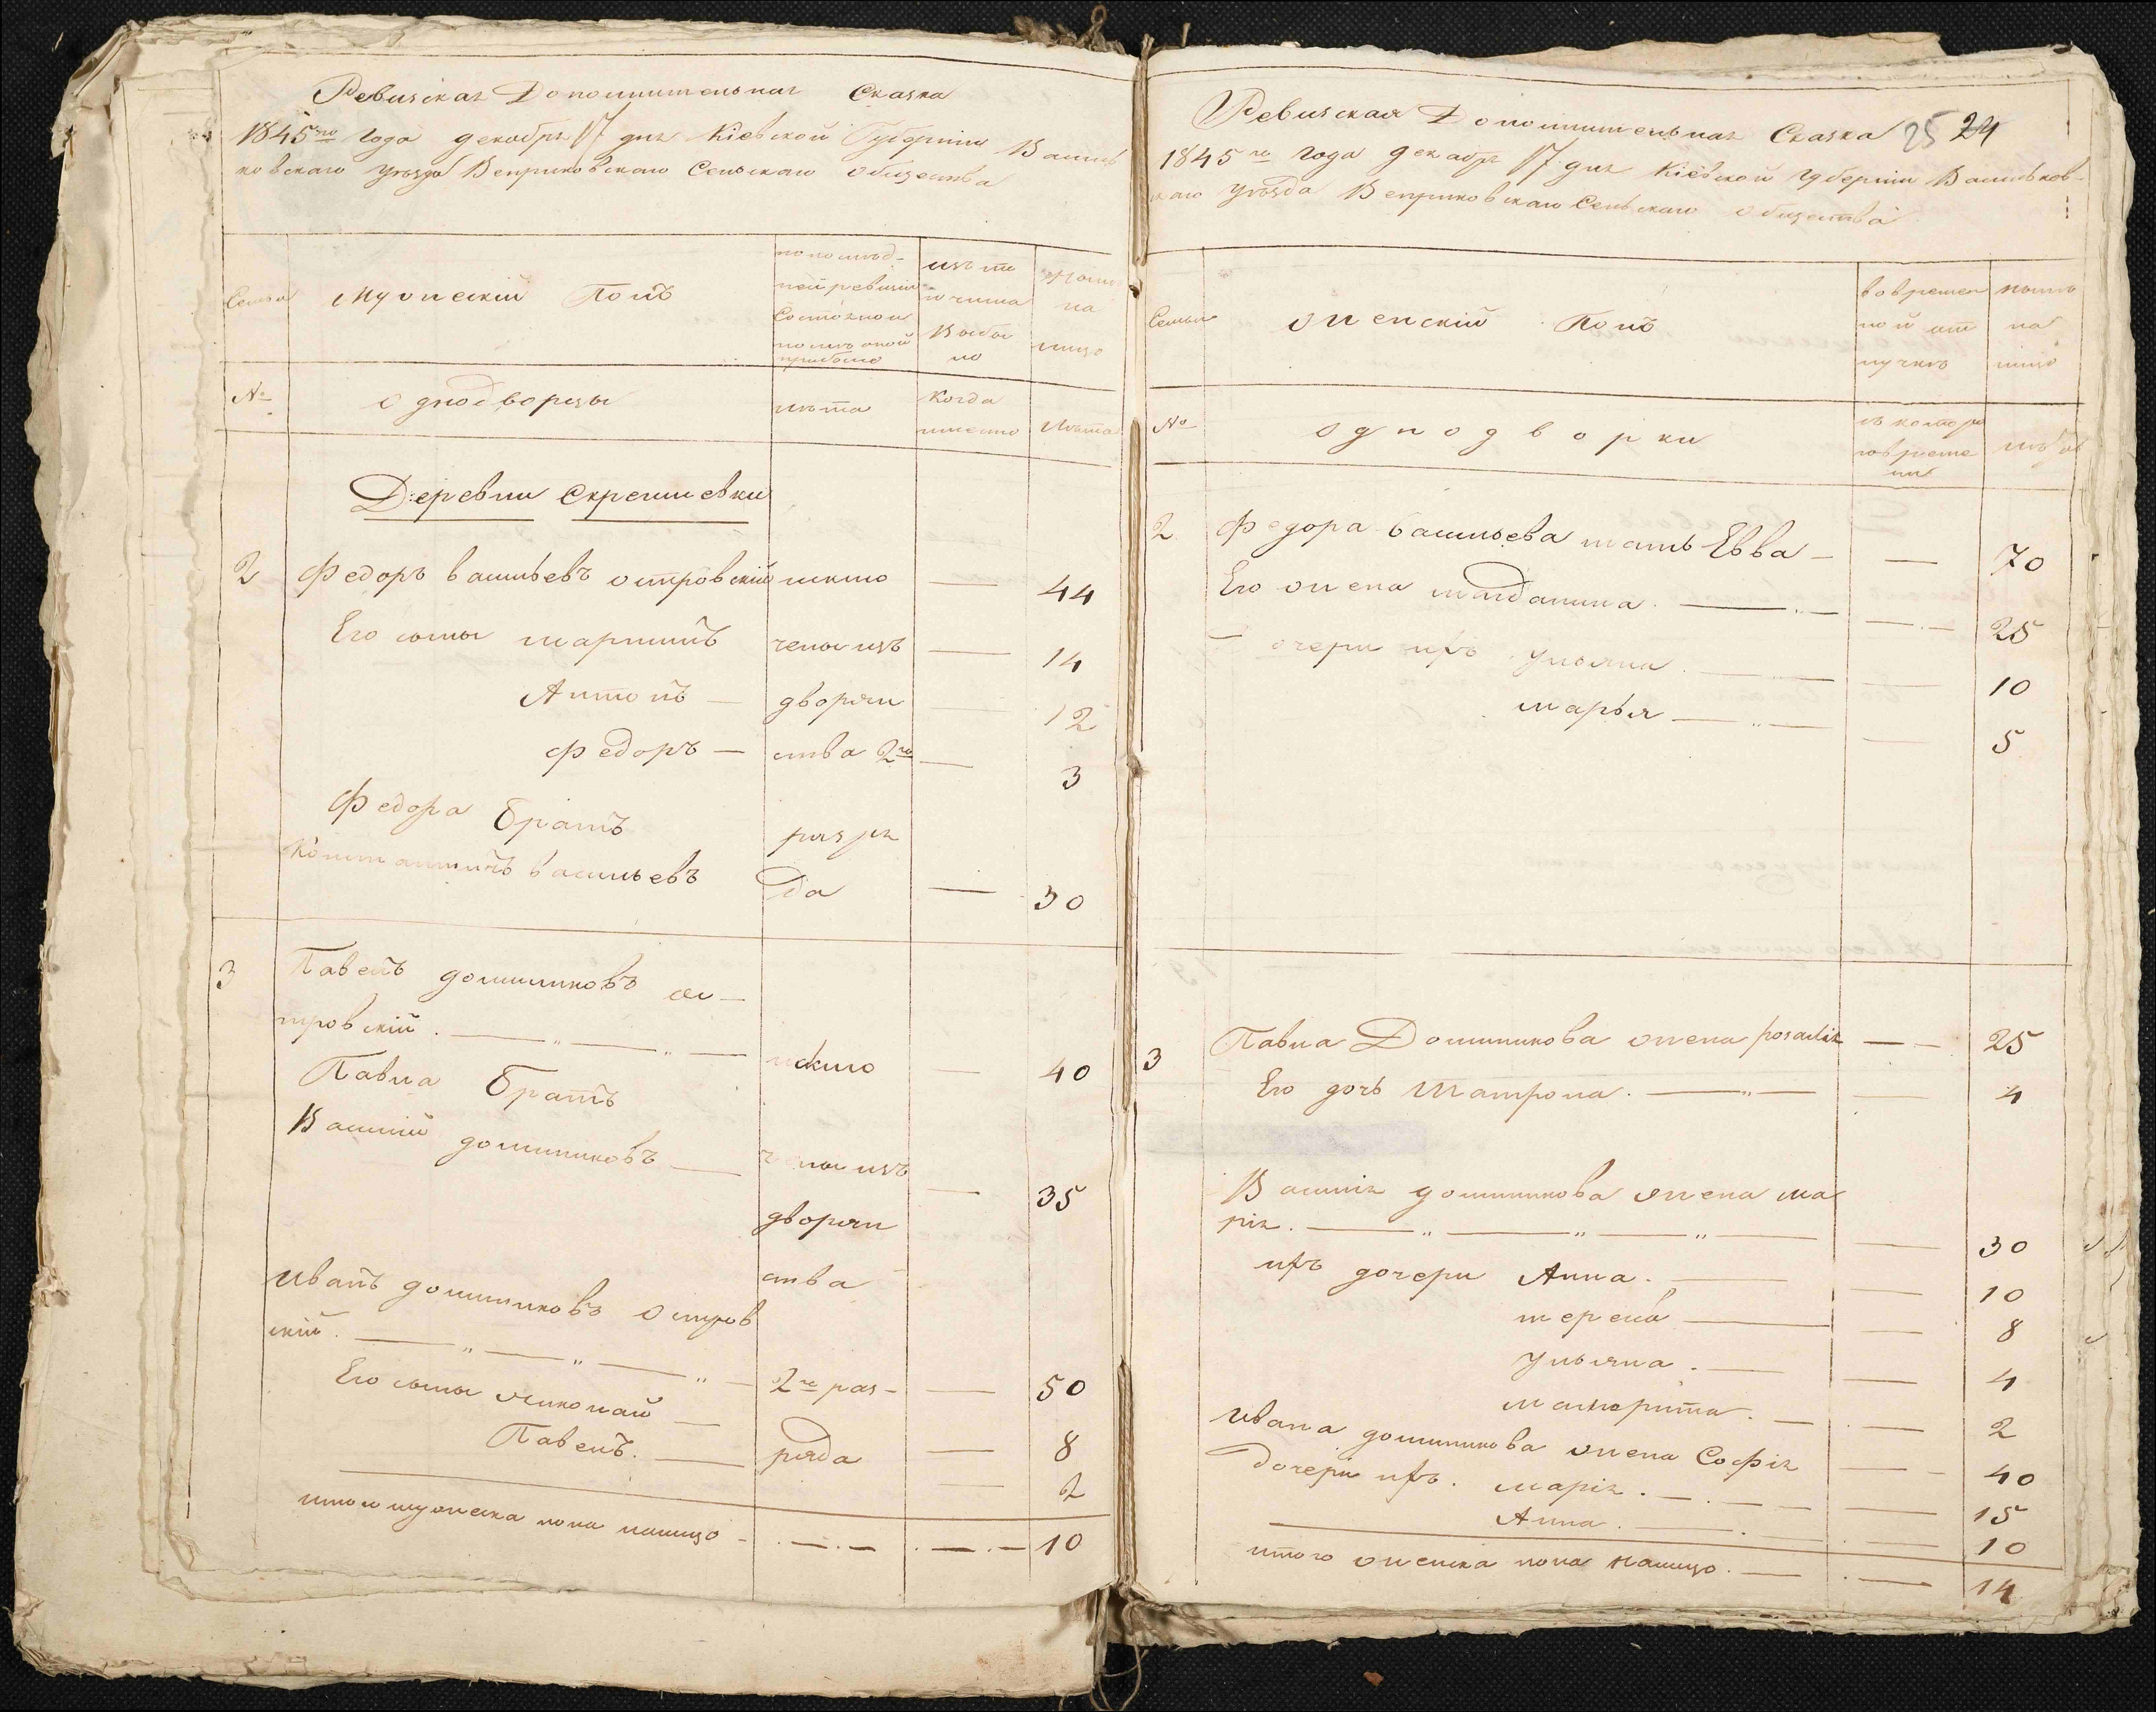 Ревизская Дополнительная Сказка
1845го года декабря 17 дня Кіевской Губерніи Василь
ковскаго уезда Веприковскаго Сельскаго общества
Семьи
Мужескій Полъ
по послѣд-
ней ревизіи
состояло и
после оной
прибыло
изъ то
го числа
Выбы
ло
Ныне
на
лицо
№
однодворцы
лѣта
Когда
именно
Лѣта
Деревни Скрешевки
2 Федоръ Васильевъ островскій исклю — 44
Его сыны мартинъ чены изъ — 14
Антонъ — дворян — 12
Федоръ — ства 2го — 3
Федора братъ разря
Константинъ васильевъ да — 30
3 Павелъ доминиковъ ос-
тровскій. исклю — 40
Павла братъ
Василій доминиковъ — чены изъ — 35
дворян
ства
Иванъ доминиковъ остров
скій. 2го раз- — 50
Его сыны николай — ряда — 8
Павелъ. — 2
итого мужеска пола налицо - 10
Ревизская Дополнительная Сказка 25 24
1845го года декабря 17 дня Кіевской губерніи Васильков-
скаго уезда Веприковскаго Сельскаго общества
Семьи
женскій Полъ
во времен
ной от
лучкѣ
ныне
на
лицо
№
однодворки
съ котора
го време
ни
лѣта
2 Федора васильева мать Евва — — 70
Его жена магдалина. — — 25
дочери ихъ ульяна — — 10
марья — — 5
3 Павла Доминикова жена розалія — — 25
Его дочь Матрона. — — 4
Василія доминикова жена ма
рія. — — 30
ихъ дочери Анна. — — 10
тереса — — 8
ульяна. — — 4
малгорита. — — 2
Ивана доминикова жена Софія — — 40
дочери ихъ. марія. — — 15
Анна. — — 10
итого женска пола налицо. — — 14